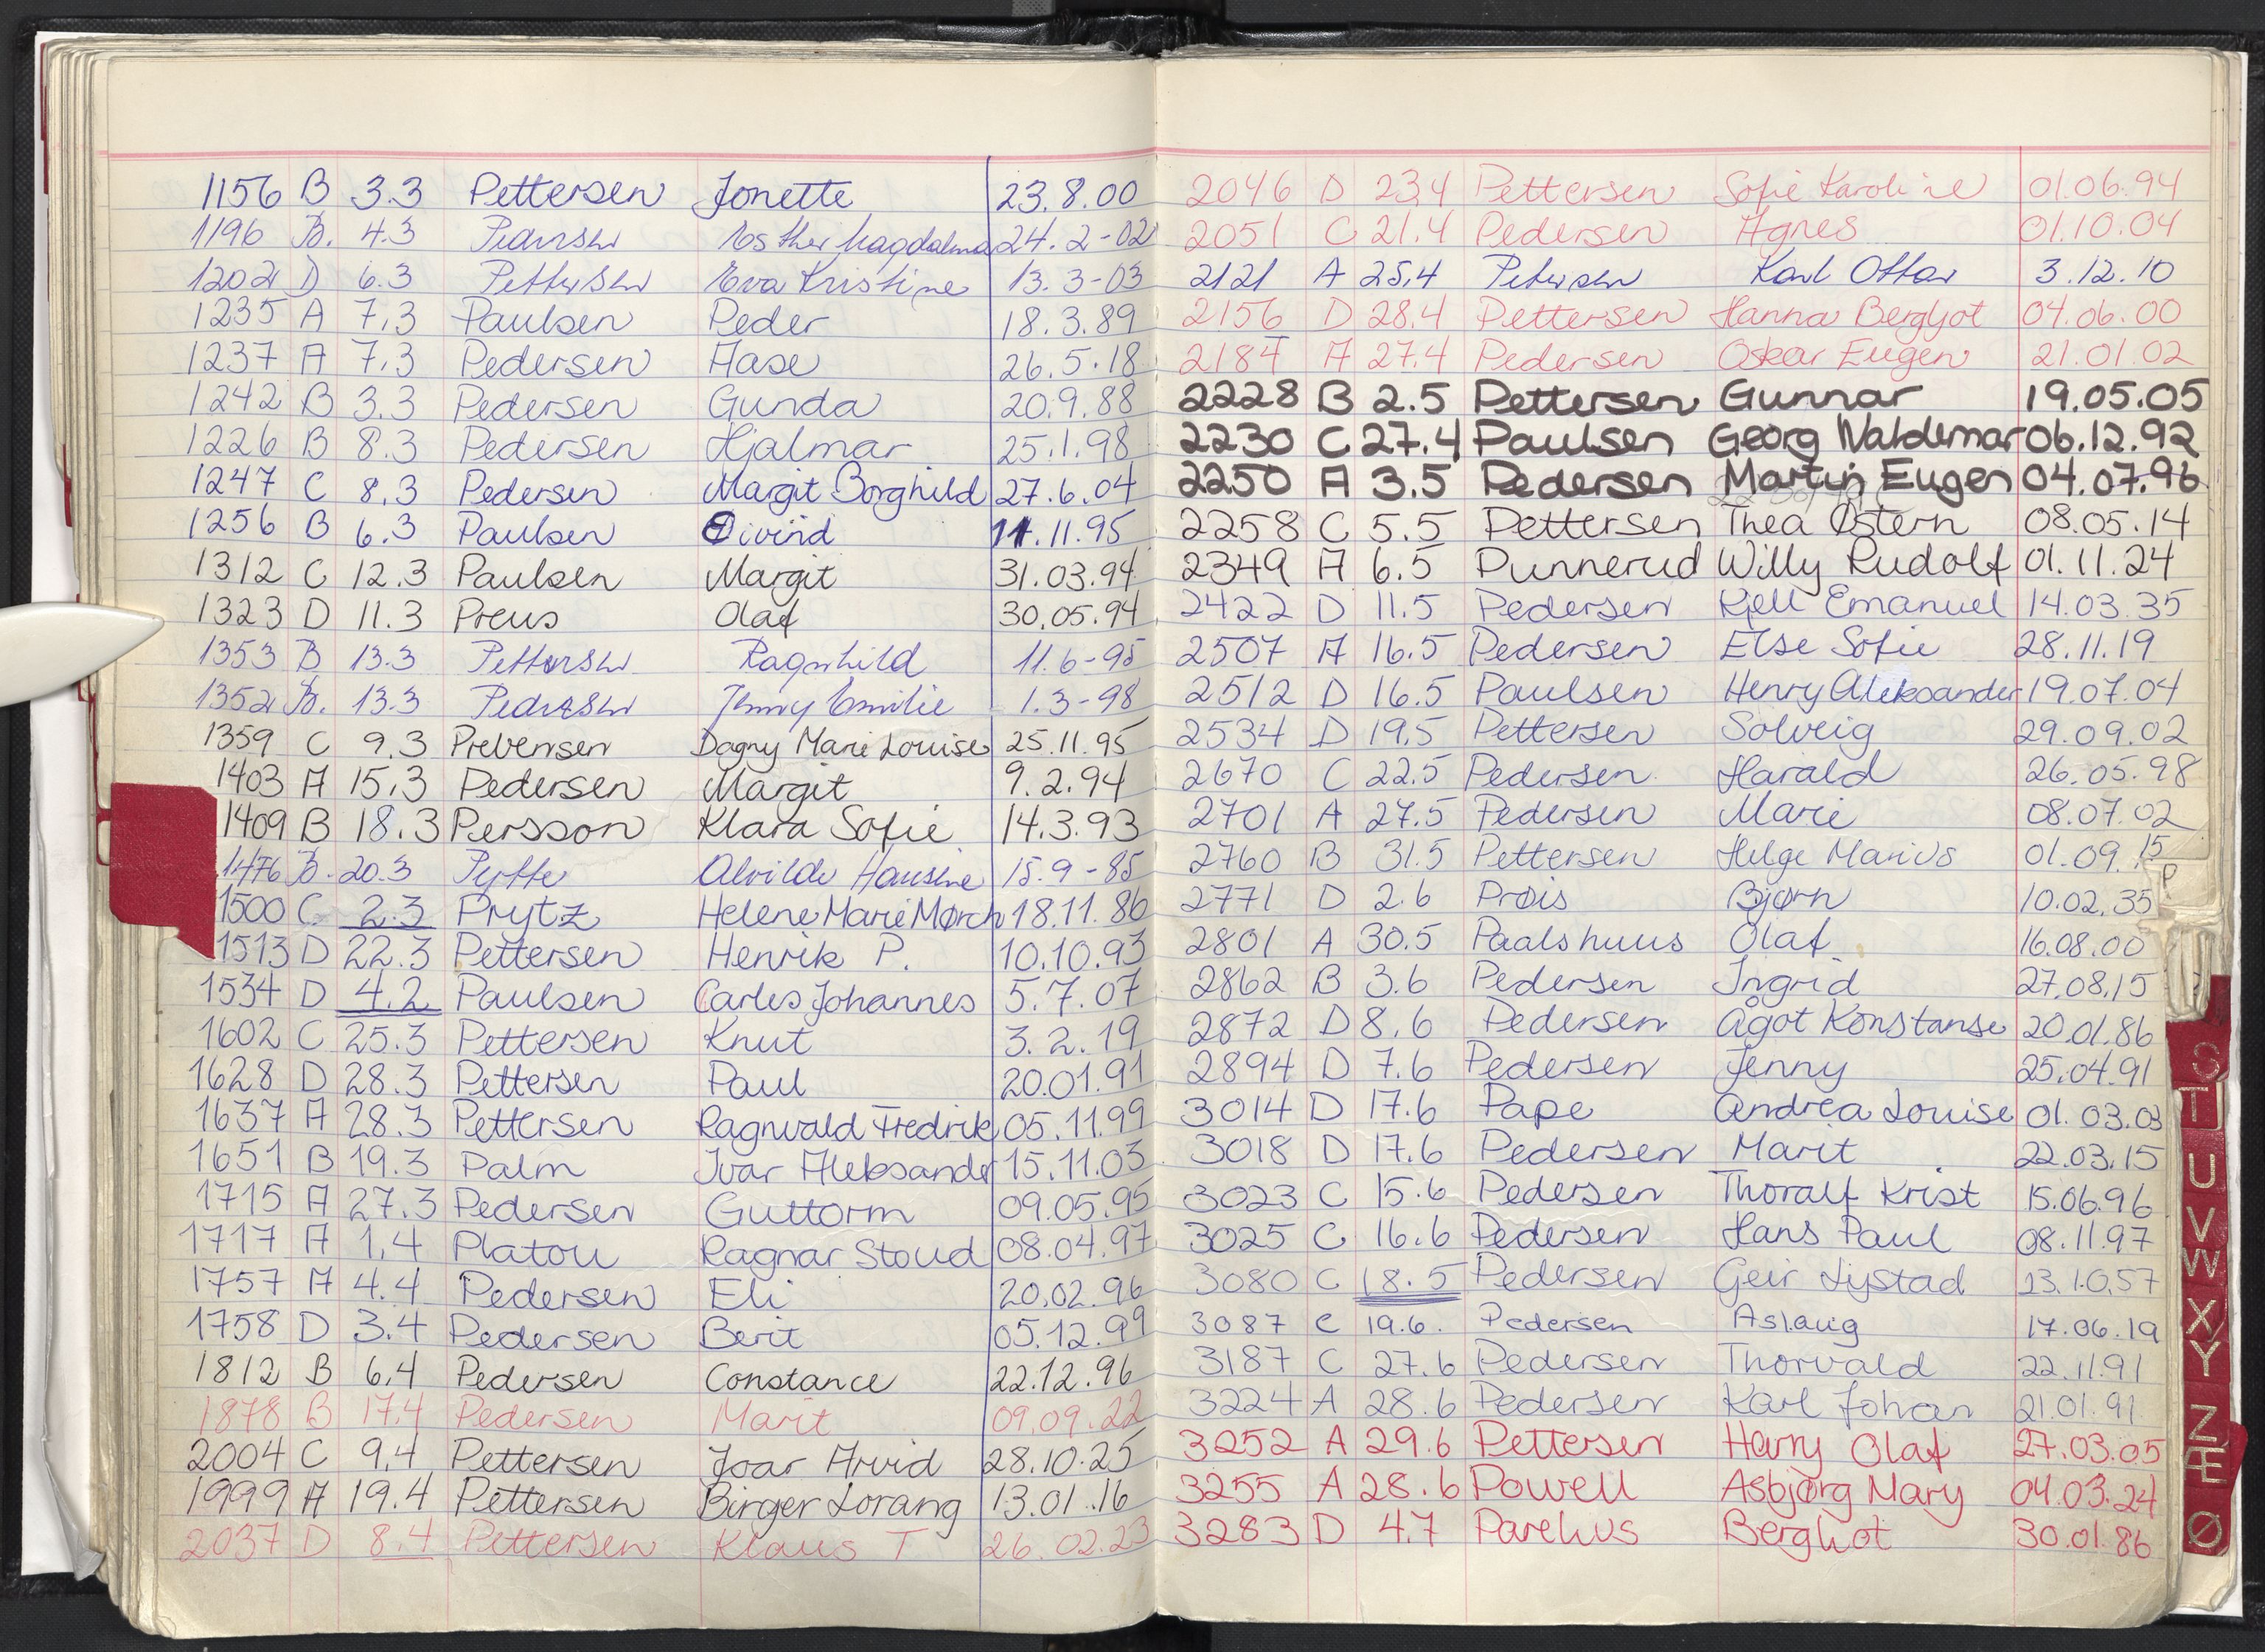 1156 B 3.3 Pettersen Jonette 23.8.00
1196 B. 4.3 Pedersen Esther Magdalena 24.2-02
1202 D 6.3 Pettersen Eva Kristine 13.3-03
1235 A 7.3 Paulsen Peder 18.3.89
1237 A 7.3 Pedersen Aase 26.5.18
1242 B 3.3 Pedersen Gunda 20.9.88
1226 B 8.3 Pedersen Hjalmar 25.1.98
1247 C 8.3 Pedersen Margit Borghild 27.6.04
1256 B 6.3 Paulsen Eivind 11.11.95
1312 C 12.3 Paulsen Margit 31.03.94
1323 D 11.3 Preus Olaf 30.05.94
1353 B 13.3 Pettersen Ragnhild 11.6-95
1352 B. 13.3 Pedersen Jenny Emilie 1.3-98
1359 C 9.3 Prebensen Dagny Marie Louise 25.11.95
1403 A 15.3 Pedersen Margit 9.2.94
1409 B 18.3 Persson Klara Sofie 14.3.93
1476 B. 20.3 Pytte Alvilde Hansine 15.9-85
1500 C 2.3 Prytz Helene Marie Mørch 18.11.86
1513 D 22.3 Pettersen Henrik P. 10.10.93
1534 D 4.2 Paulsen Carles Johannes 5.7.07
1602 C 25.3 Pettersen Knut 3.2.19
1628 D 28.3 Pettersen Paul 20.01.91
1637 A 28.3 Pettersen Ragnvald Fredrik 05.11.99
1651 B 19.3 Palm Ivar Aleksander 15.11.03
1715 A 27.3 Pedersen Guttorm 09.05.95
1717 A 1.4 Platou Ragnar Stoud 08.04.97
1757 A 4.4 Pedersen Eli 20.02.96
1758 D 3.4 Pedersen Berit 05.12.99
1812 B 6.4 Pedersen Constance 22.12.96
1878 B 17.4 Pedersen Marit 09.09.22
2004 C 9.4 Pettersen Ivar Arvid 28.10.25
1999 A 19.4 Pettersen Birger Lorang 13.01.16
2037 D 8.4 Pettersen Klaus T 26.02.23
2046 D 23.4 Pettersen Sofie Karoline 01.06.94
2051 C 21.4 Pedersen Agnes 01.10.04
2121 A 25.4 Petersen Karl Ottar 3.12.10
2156 D 28.4 Pettersen Hanna Bergljot 04.06.00
2184 A 27.4 Pedersen Oskar Eugen 21.01.02
2228 B 2.5 Pettersen Gunnar 19.05.05
2230 C 27.4 Paulsen Georg Waldemar 06.12.92
2250 A 3.5 Pedersen Martin Eugen 04.07.96
2258 C 5.5 Pettersen Thea Østern 08.05.14
2349 A 6.5 Punnerud Willy Rudolf 01.11.24
2422 D 11.5 Pedersen Kjell Emanuel 14.03.35
2507 A 16.5 Pedersen Else Sofie 28.11.19
2512 D 16.5 Paulsen Henry Aleksander 19.07.04
2534 D 19.5 Pettersen Solveig 29.09.02
2670 C 22.5 Pedersen Harald 26.05.98
2701 A 27.5 Pedersen Marie 08.07.02
2760 B 31.5 Pettersen Helge Marius 01.09.15
2771 D 2.6 Prøis Bjørn 10.02.35
2801 A 30.5 Paalshuus Olaf 16.08.00
2862 B 3.6 Pedersen Ingrid 27.08.15
2872 D 8.6 Pedersen Ågot Konstanse 20.01.86
2894 D 7.6 Pedersen Jenny 25.04.91
3014 D 17.6 Pape Andrea Louise 01.03.03
3018 D 17.6 Pedersen Marit 22.03.15
3023 C 15.6 Pedersen Thoralf Krist 15.06.96
3025 C 16.6 Pedersen Hans Paul 08.11.97
3080 C 18.5 Pedersen Geir Lystad 23.10.57
3087 C 19.6. Pedersen Aslaug 17.06.19
3187 C 27.6 Pedersen Thorvald 22.11.91
3224 A 28.6 Pedersen Karl Johan 21.01.91
3252 A 29.6 Pettersen Harry Olaf 27.03.05
3255 A 28.6 Powell Asbjørg Mary 04.03.24
3283 D 4.7 Parelius Bergliot 30.01.86
P
S
T
U
V
W
X
Y
Z
Æ
Ø